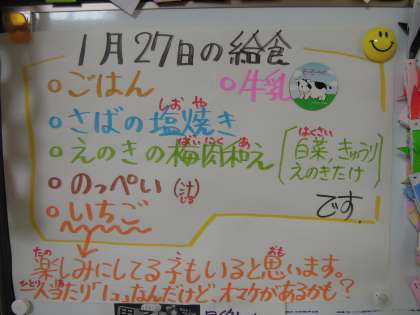 1月27日の給食
ごはん
牛乳
さばの塩焼き
しお や
えのきの梅肉和え
ばいにく あ
白菜,きゅうり
はくさい
えのきたけ
のっぺい(汁)
しる
いちご
です。
楽しみにしてる子もいると思います。
たの こ おも
一人当たり「1コ」なんだけど、オマケがあるかも?
ひとり あ